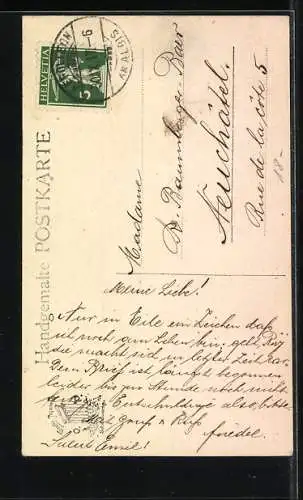 Handgemalte POSTKARTE
HELVETIA
5
Madame
B. Baumberger-Bair
Neuchâtel.
Rue de la côte 5
18.-
Meine Liebe!
Nur in Eile ein Zeichen daß
ich noch am Leben bin, geht
die macht sich in letzter Zeit rar.
Dein Brief ist längst begonnen
leider bis zur Stunde noch nicht
Entschuldige also, bitte
Herzl. Gruss & Kuss
Friedel.
Salut Emil!